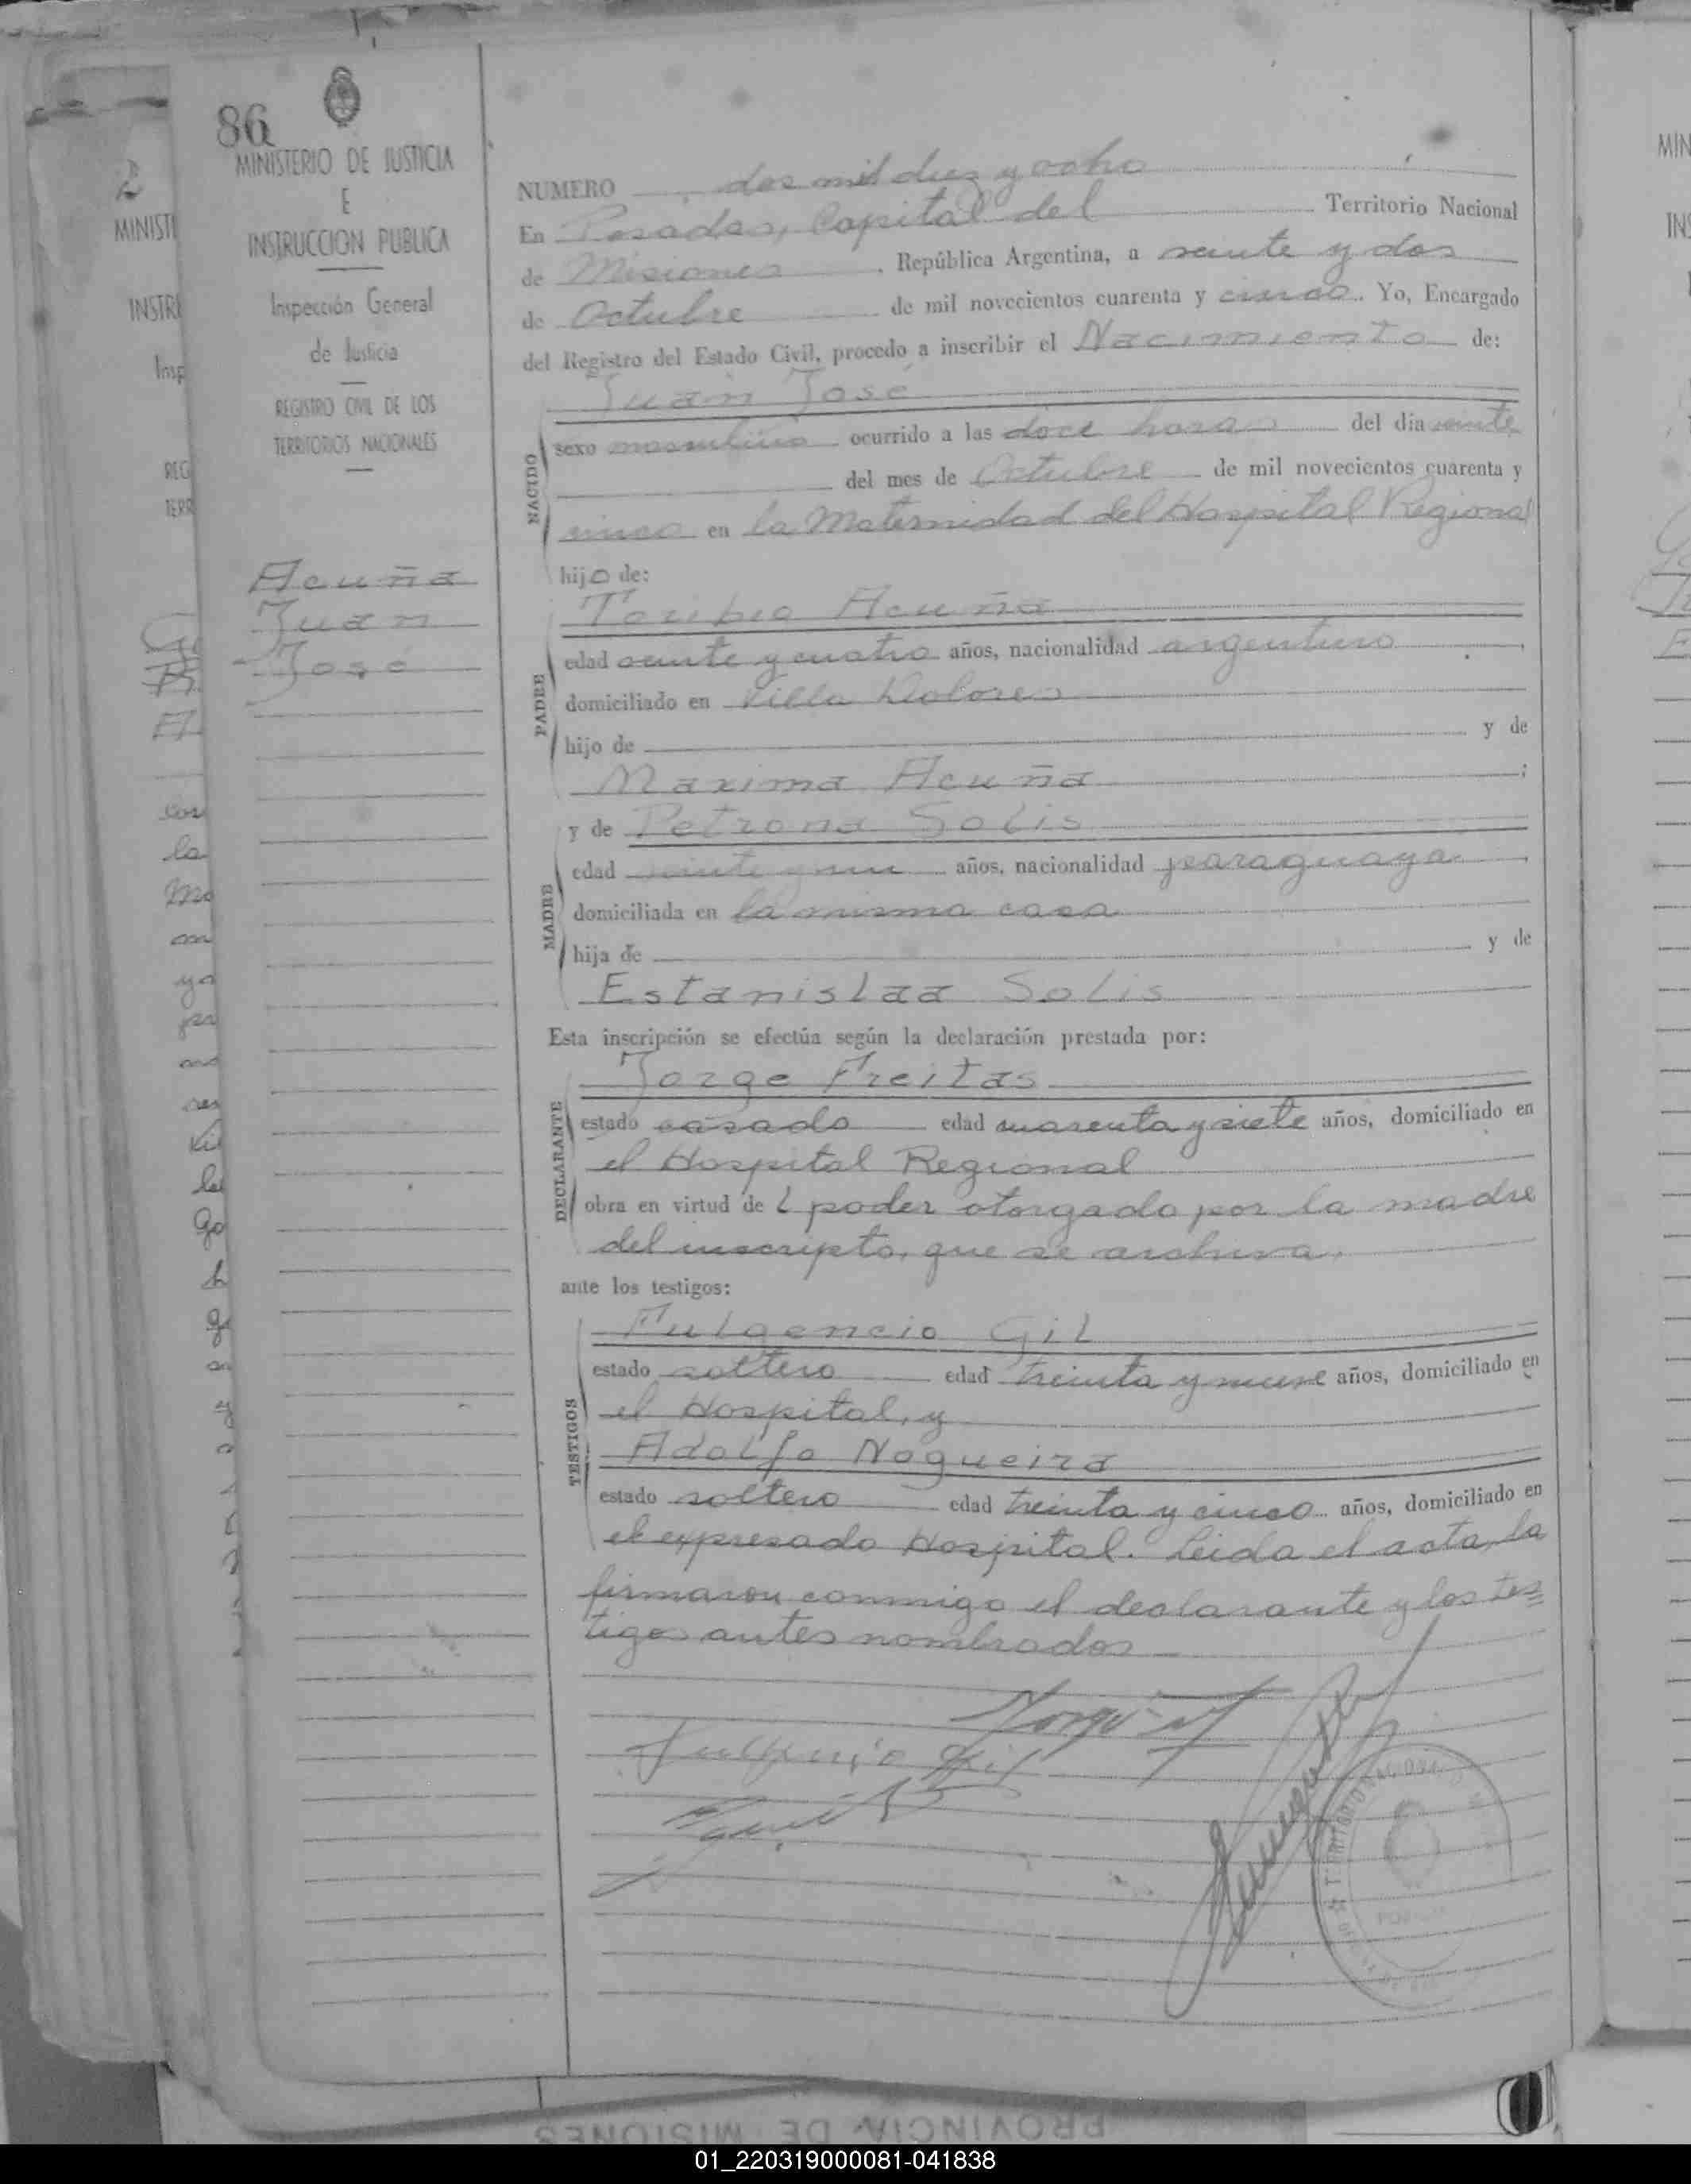 86
MINISTERIO DE JUSTICIA
E
INSTRUCCION PUBLICA
Inspección General
de Justicia
REGISTRO CIVIL DE LOS
TERRITORIOS NACIONALES
Acuña
Juan
José
NUMERO dos mil diez y ocho
En Posadas, Capital del Territorio Nacional
de Misiones, República Argentina, a veinte y dos
de Octubre de mil novecientos cuarenta y cinco. Yo, Encargado
del Registro del Estado Civil, procedo a inscribir el Nacimiento de:
Juan José
NACIDO
sexo masculino ocurrido a las doce horas del día veinte
del mes de Octubre de mil novecientos cuarenta y
cinco en la Maternidad del Hospital Regional
hijo de:
Toribio Acuña
PADRE
edad veinte y cuatro años, nacionalidad argentino,
domiciliado en Villa Dolores
hijo de y de
Maxima Acuña;
y de Petrona Solis
MADRE
edad veinte y un años, nacionalidad paraguaya,
domiciliada en la misma casa
hija de y de
Estanislaa Solis
Esta inscripción se efectúa según la declaración prestada por:
Jorge Freitas
DECLARANTE
estado casado edad cuarenta y siete años, domiciliado en
el Hospital Regional
obra en virtud de l poder otorgado por la madre
del inscripto, que se archiva.
ante los testigos:
Fulgencio Gil
TESTIGOS
estado soltero edad treinta y nueve años, domiciliado en
el Hospital, y
Adolfo Nogueira
estado soltero edad treinta y cinco años, domiciliado en
el expresado Hospital. Leida el acta, la
firmaron conmigo el declarante y los tes=
tigos antes nombrados
Fulgencio Gil
PROVINCIA DE MISIONES
01_220319000081-041838